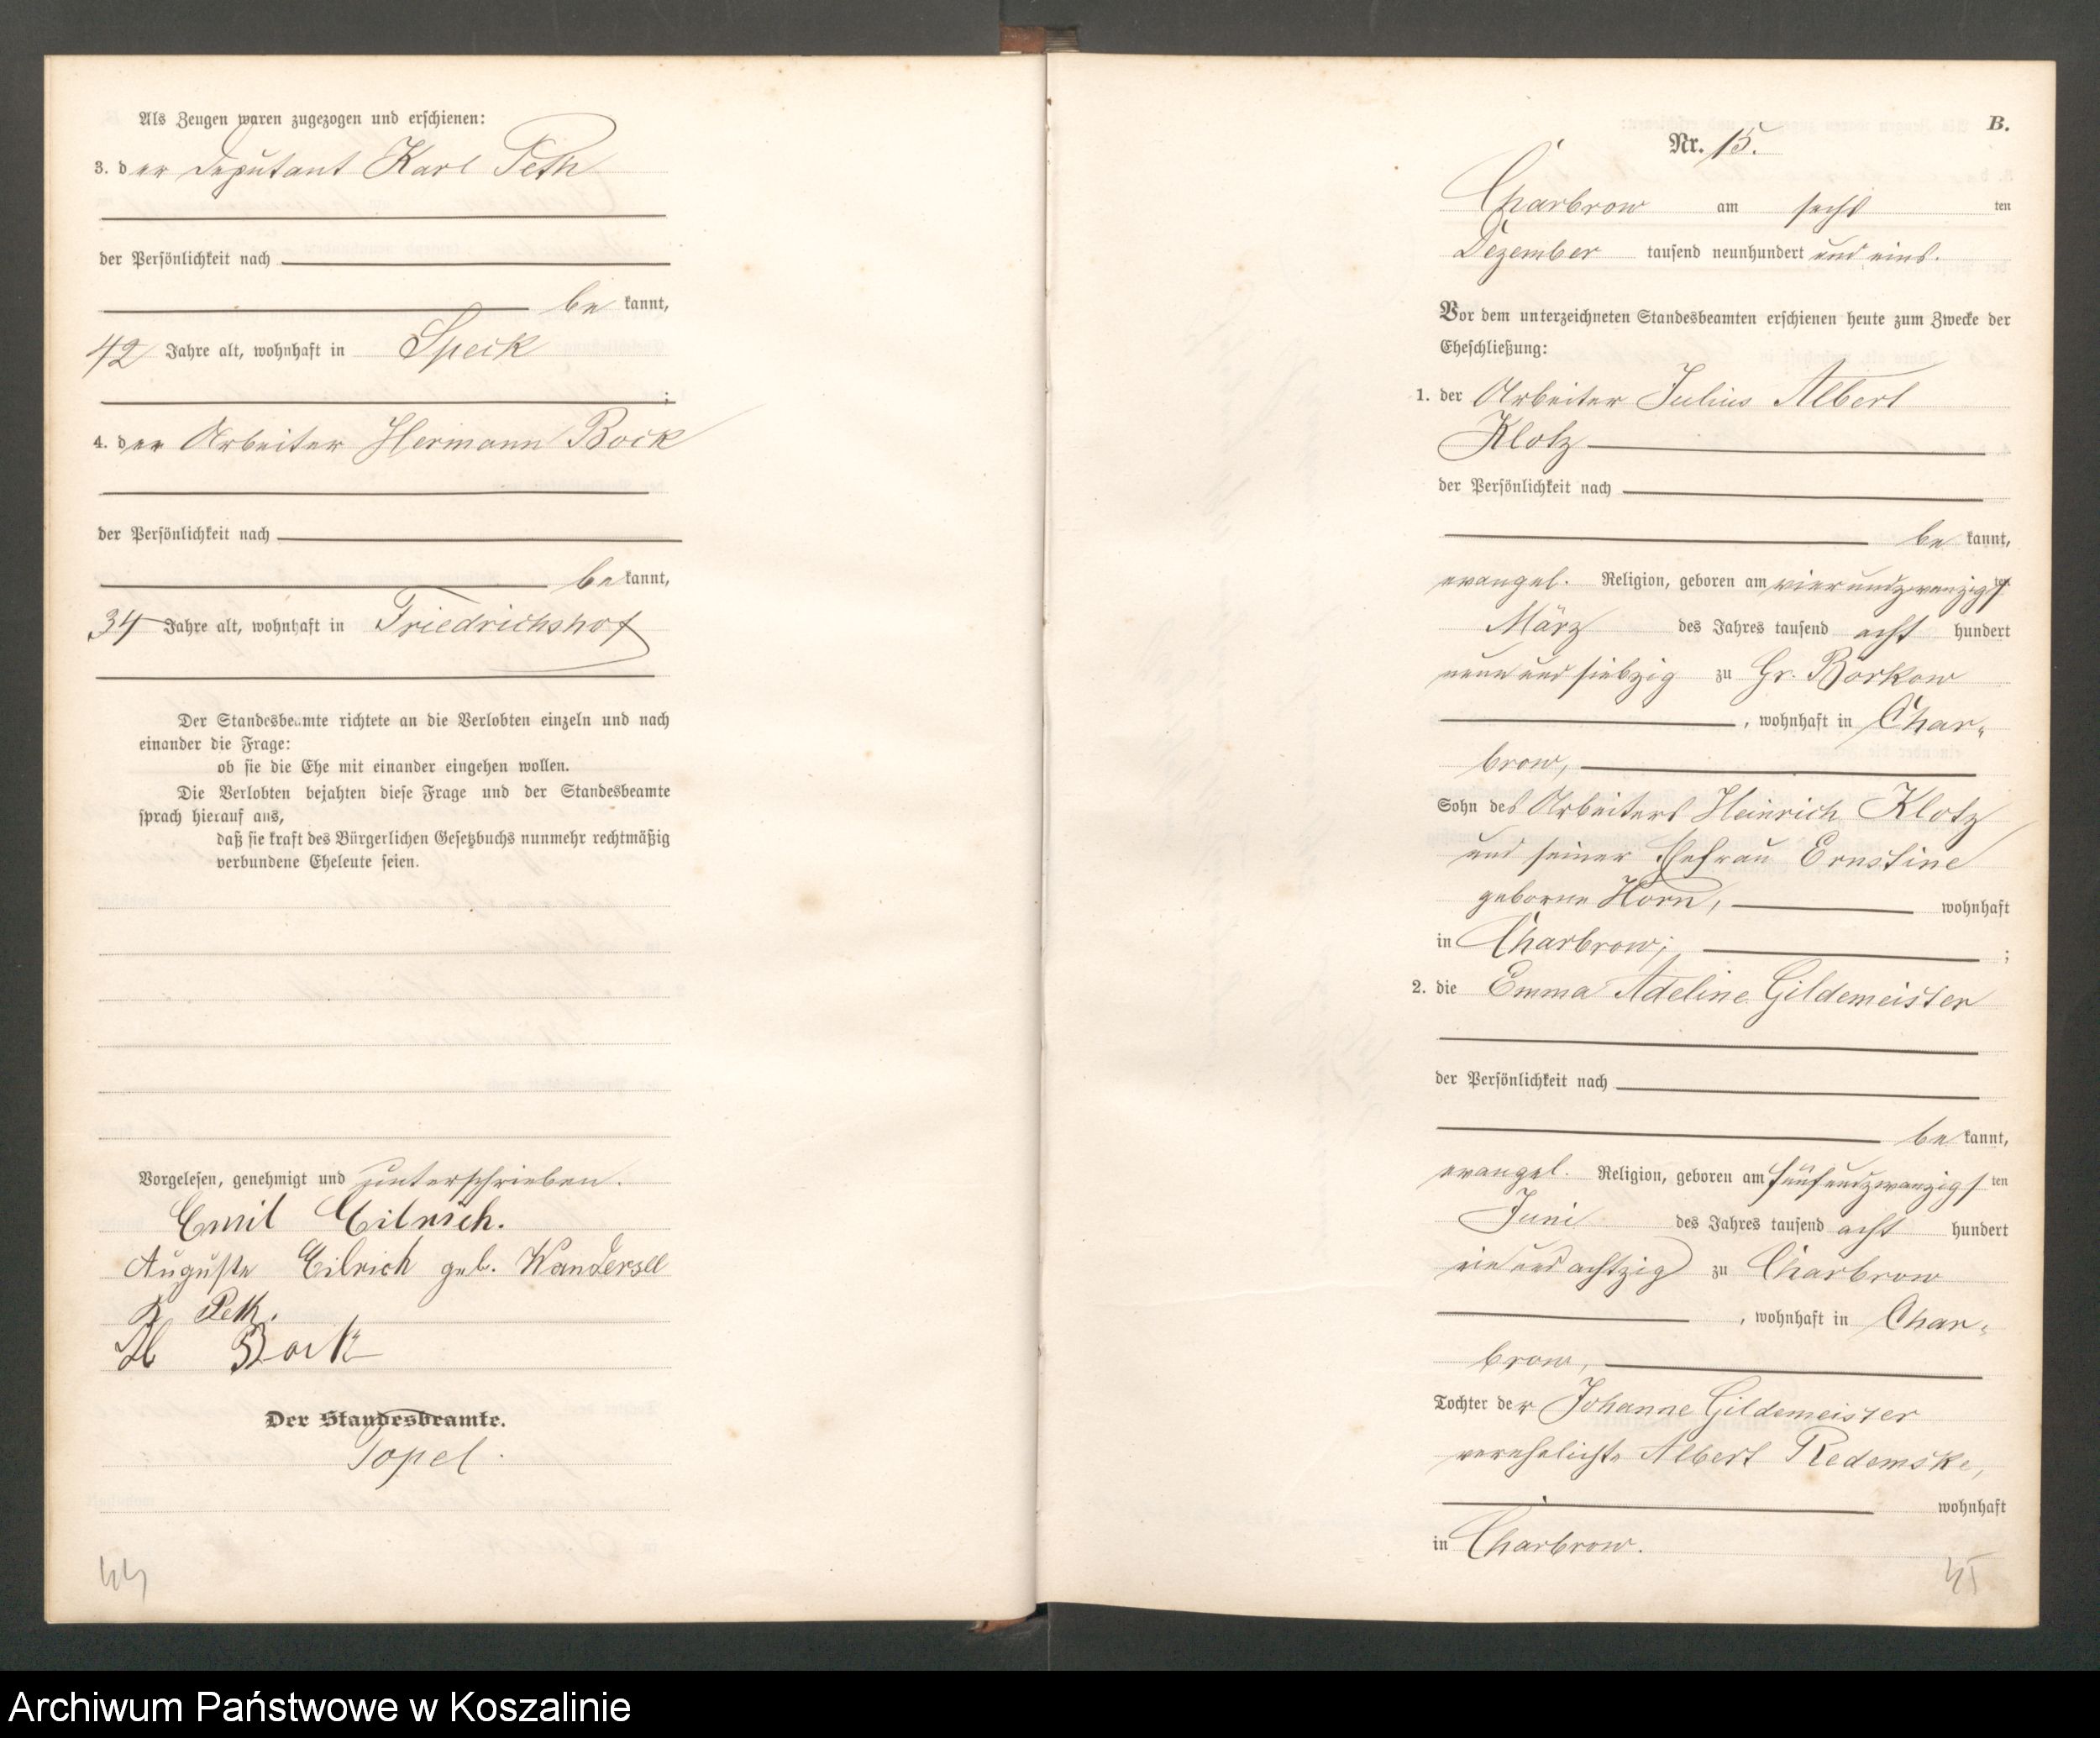 Als Zeugen waren zugezogen und erschienen:
3. der Deputant Karl Peth
der Persönlichkeit nach
be kannt,
42 Jahre alt, wohnhaft in Speck
;
4. der Arbeiter Hermann Bock
der Persönlichkeit nach
be kannt,
34 Jahre alt, wohnhaft in Friedrichshof
Der Standesbeamte richtete an die Verlobten einzeln und nach
einander die Frage:
ob sie die Ehe mit einander eingehen wollen.
Die Verlobten bejahten diese Frage und der Standesbeamte
sprach hierauf aus,
daß sie kraft des Bürgerlichen Gesetzbuchs nunmehr rechtmäßig
verbundene Eheleute seien.
Vorgelesen, genehmigt und unterschrieben.
Emil Eilrich.
Auguste Eilrich geb. Wandersee
K Peth.
H Bock
Der Standesbeamte.
Topel.
44
B.
Nr. 15.
Charbrow am sechsten
Dezember tausend neunhundert und eins.
Vor dem unterzeichneten Standesbeamten erschienen heute zum Zwecke der
Eheschließung:
1. der Arbeiter Julius Albert
Klotz
der Persönlichkeit nach
be kannt,
evangel. Religion, geboren am vierundzwanzigsten
März des Jahres tausend acht hundert
neun und siebzig zu Gr. Borkow
, wohnhaft in Char-
brow,
Sohn des Arbeiters Heinrich Klotz
und seiner Ehefrau Ernstine
geborne Horn, wohnhaft
in Charbrow; ;
2. die Emma Adeline Gildemeister
der Persönlichkeit nach
be kannt,
evangel. Religion, geboren am fünfundzwanzigsten
Juni des Jahres tausend acht hundert
ein und achtzig zu Charbrow
, wohnhaft in Char-
brow,
Tochter der Johanne Gildemeister
verehelichte Albert Redemske,
wohnhaft
in Charbrow.
45
Archiwum Państwowe w Koszalinie